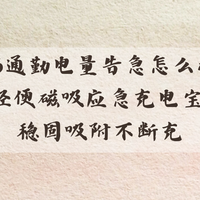 通勤电量告急怎么
便磁吸应急充电宝
稳固吸附不断充